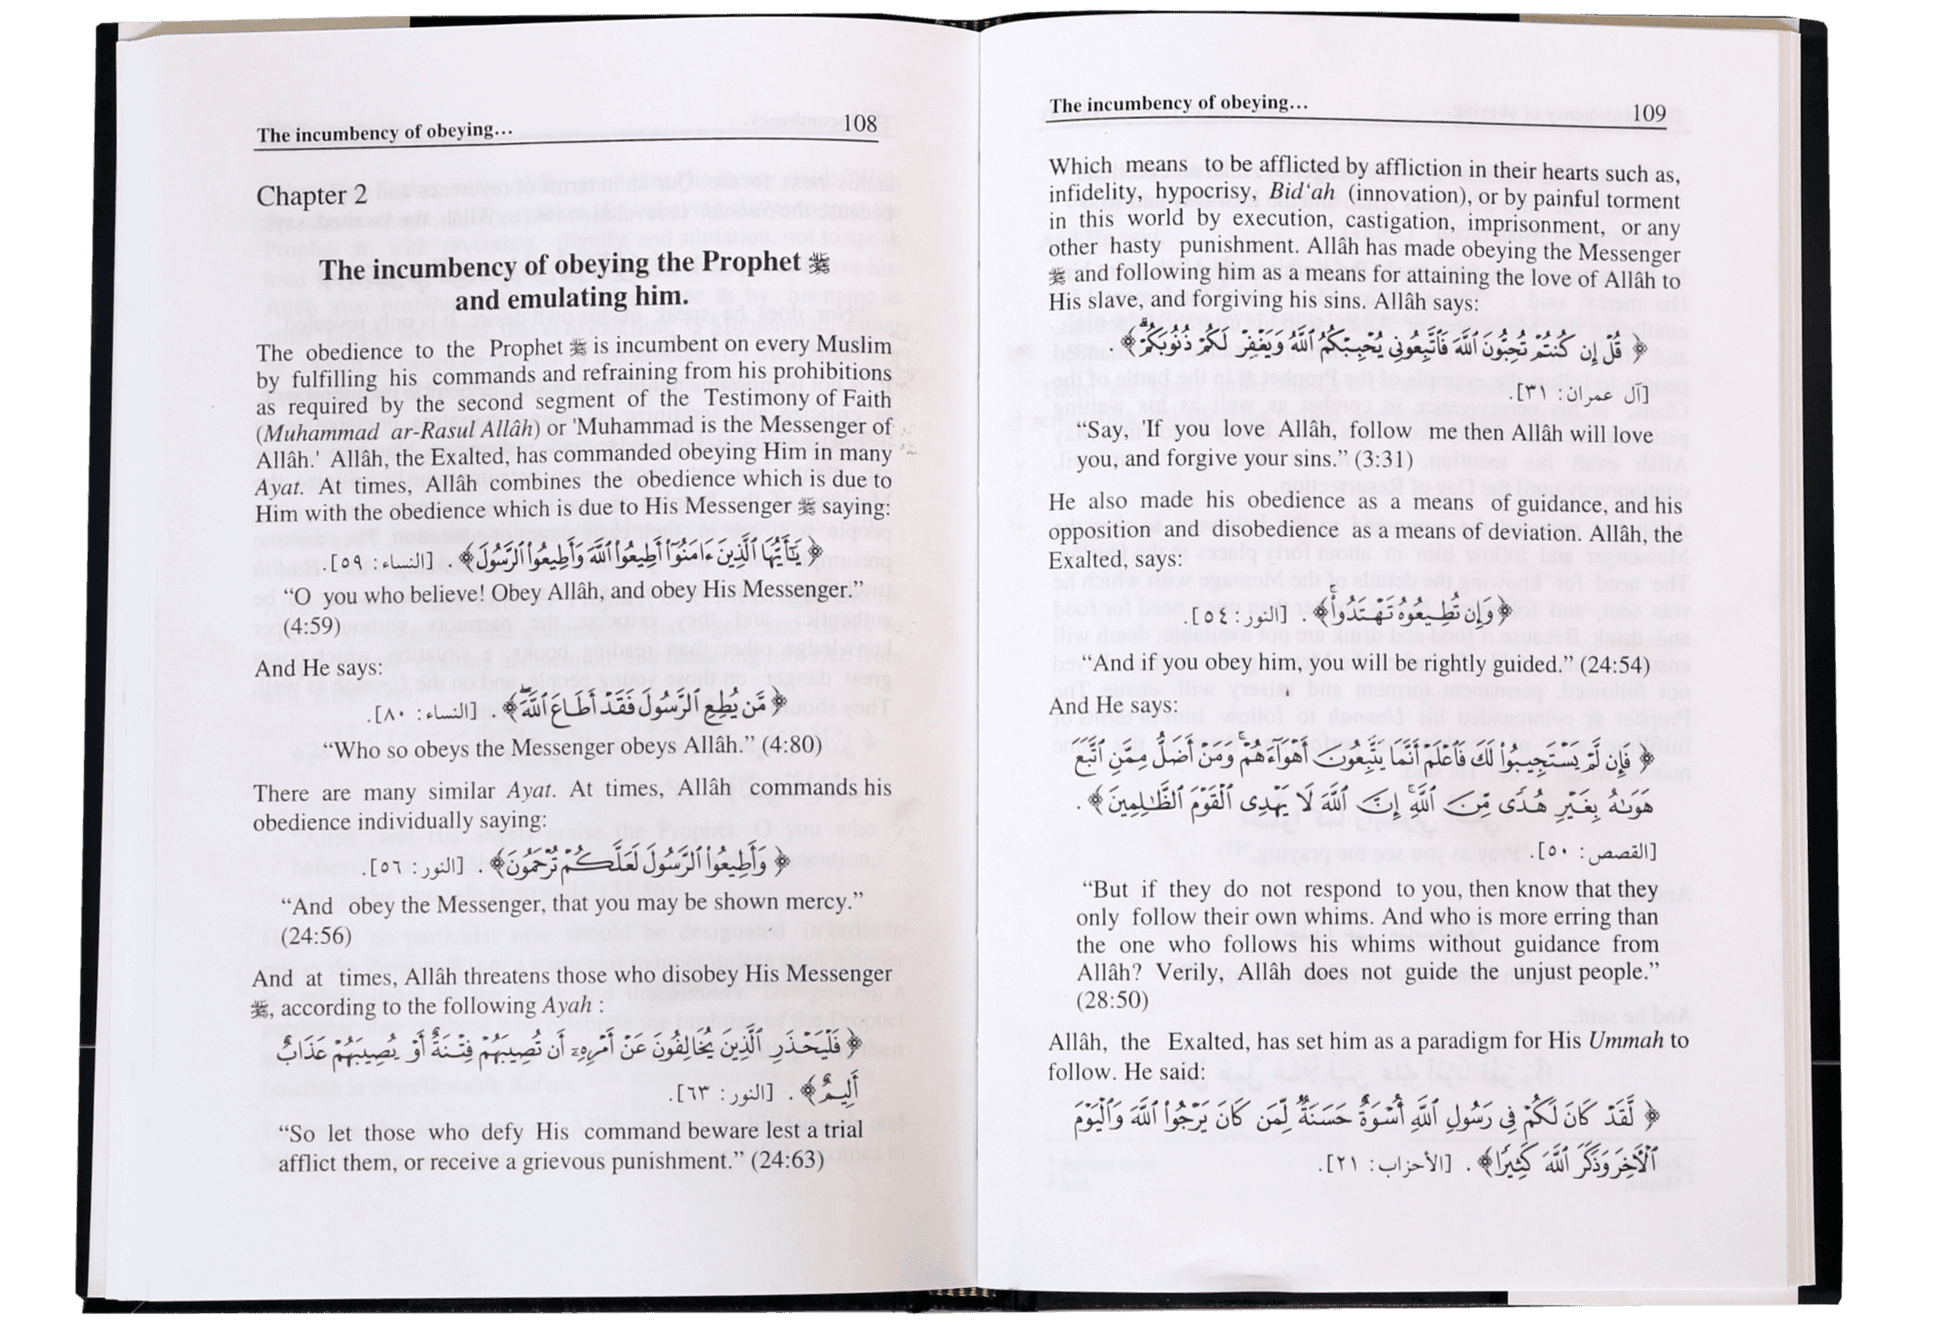 The incumbency of obeying... 108
Chapter 2
The incumbency of obeying the Prophet ﷺ
and emulating him.
The obedience to the Prophet ﷺ is incumbent on every Muslim
by fulfilling his commands and refraining from his prohibitions
as required by the second segment of the Testimony of Faith
(Muhammad ar-Rasul Allâh) or 'Muhammad is the Messenger of
Allâh.' Allâh, the Exalted, has commanded obeying Him in many
Ayat. At times, Allâh combines the obedience which is due to
Him with the obedience which is due to His Messenger ﷺ saying:
﴿ يَٰٓأَيُّهَا ٱلَّذِينَ ءَامَنُوٓا۟ أَطِيعُوا۟ ٱللَّهَ وَأَطِيعُوا۟ ٱلرَّسُولَ﴾ . [النساء: ٥٩].
“O you who believe! Obey Allâh, and obey His Messenger.”
(4:59)
And He says:
﴿ مَّن يُطِعِ ٱلرَّسُولَ فَقَدْ أَطَاعَ ٱللَّهَۖ﴾ . [النساء: ٨٠].
“Who so obeys the Messenger obeys Allâh.” (4:80)
There are many similar Ayat. At times, Allâh commands his
obedience individually saying:
﴿ وَأَطِيعُوا۟ ٱلرَّسُولَ لَعَلَّكُمْ تُرْحَمُونَ﴾ . [النور: ٥٦].
“And obey the Messenger, that you may be shown mercy.”
(24:56)
And at times, Allâh threatens those who disobey His Messenger
ﷺ, according to the following Ayah :
﴿ فَلْيَحْذَرِ ٱلَّذِينَ يُخَالِفُونَ عَنْ أَمْرِهِۦٓ أَن تُصِيبَهُمْ فِتْنَةٌ أَوْ يُصِيبَهُمْ عَذَابٌ
أَلِيمٌ﴾ . [النور: ٦٣].
“So let those who defy His command beware lest a trial
afflict them, or receive a grievous punishment.” (24:63)
The incumbency of obeying... 109
Which means to be afflicted by affliction in their hearts such as,
infidelity, hypocrisy, Bid‘ah (innovation), or by painful torment
in this world by execution, castigation, imprisonment, or any
other hasty punishment. Allâh has made obeying the Messenger
ﷺ and following him as a means for attaining the love of Allâh to
His slave, and forgiving his sins. Allâh says:
﴿ قُلْ إِن كُنتُمْ تُحِبُّونَ ٱللَّهَ فَٱتَّبِعُونِى يُحْبِبْكُمُ ٱللَّهُ وَيَغْفِرْ لَكُمْ ذُنُوبَكُمْۗ﴾ .
[آل عمران: ٣١].
“Say, 'If you love Allâh, follow me then Allâh will love
you, and forgive your sins.” (3:31)
He also made his obedience as a means of guidance, and his
opposition and disobedience as a means of deviation. Allâh, the
Exalted, says:
﴿ وَإِن تُطِيعُوهُ تَهْتَدُوا۟ۚ﴾ . [النور: ٥٤].
“And if you obey him, you will be rightly guided.” (24:54)
And He says:
﴿ فَإِن لَّمْ يَسْتَجِيبُوا۟ لَكَ فَٱعْلَمْ أَنَّمَا يَتَّبِعُونَ أَهْوَآءَهُمْۚ وَمَنْ أَضَلُّ مِمَّنِ ٱتَّبَعَ
هَوَىٰهُ بِغَيْرِ هُدًى مِّنَ ٱللَّهِۚ إِنَّ ٱللَّهَ لَا يَهْدِى ٱلْقَوْمَ ٱلظَّٰلِمِينَ﴾ .
[القصص: ٥٠].
“But if they do not respond to you, then know that they
only follow their own whims. And who is more erring than
the one who follows his whims without guidance from
Allâh? Verily, Allâh does not guide the unjust people.”
(28:50)
Allâh, the Exalted, has set him as a paradigm for His Ummah to
follow. He said:
﴿ لَّقَدْ كَانَ لَكُمْ فِى رَسُولِ ٱللَّهِ أُسْوَةٌ حَسَنَةٌ لِّمَن كَانَ يَرْجُوا۟ ٱللَّهَ وَٱلْيَوْمَ
ٱلْءَاخِرَ وَذَكَرَ ٱللَّهَ كَثِيرًا﴾ . [الأحزاب: ٢١].